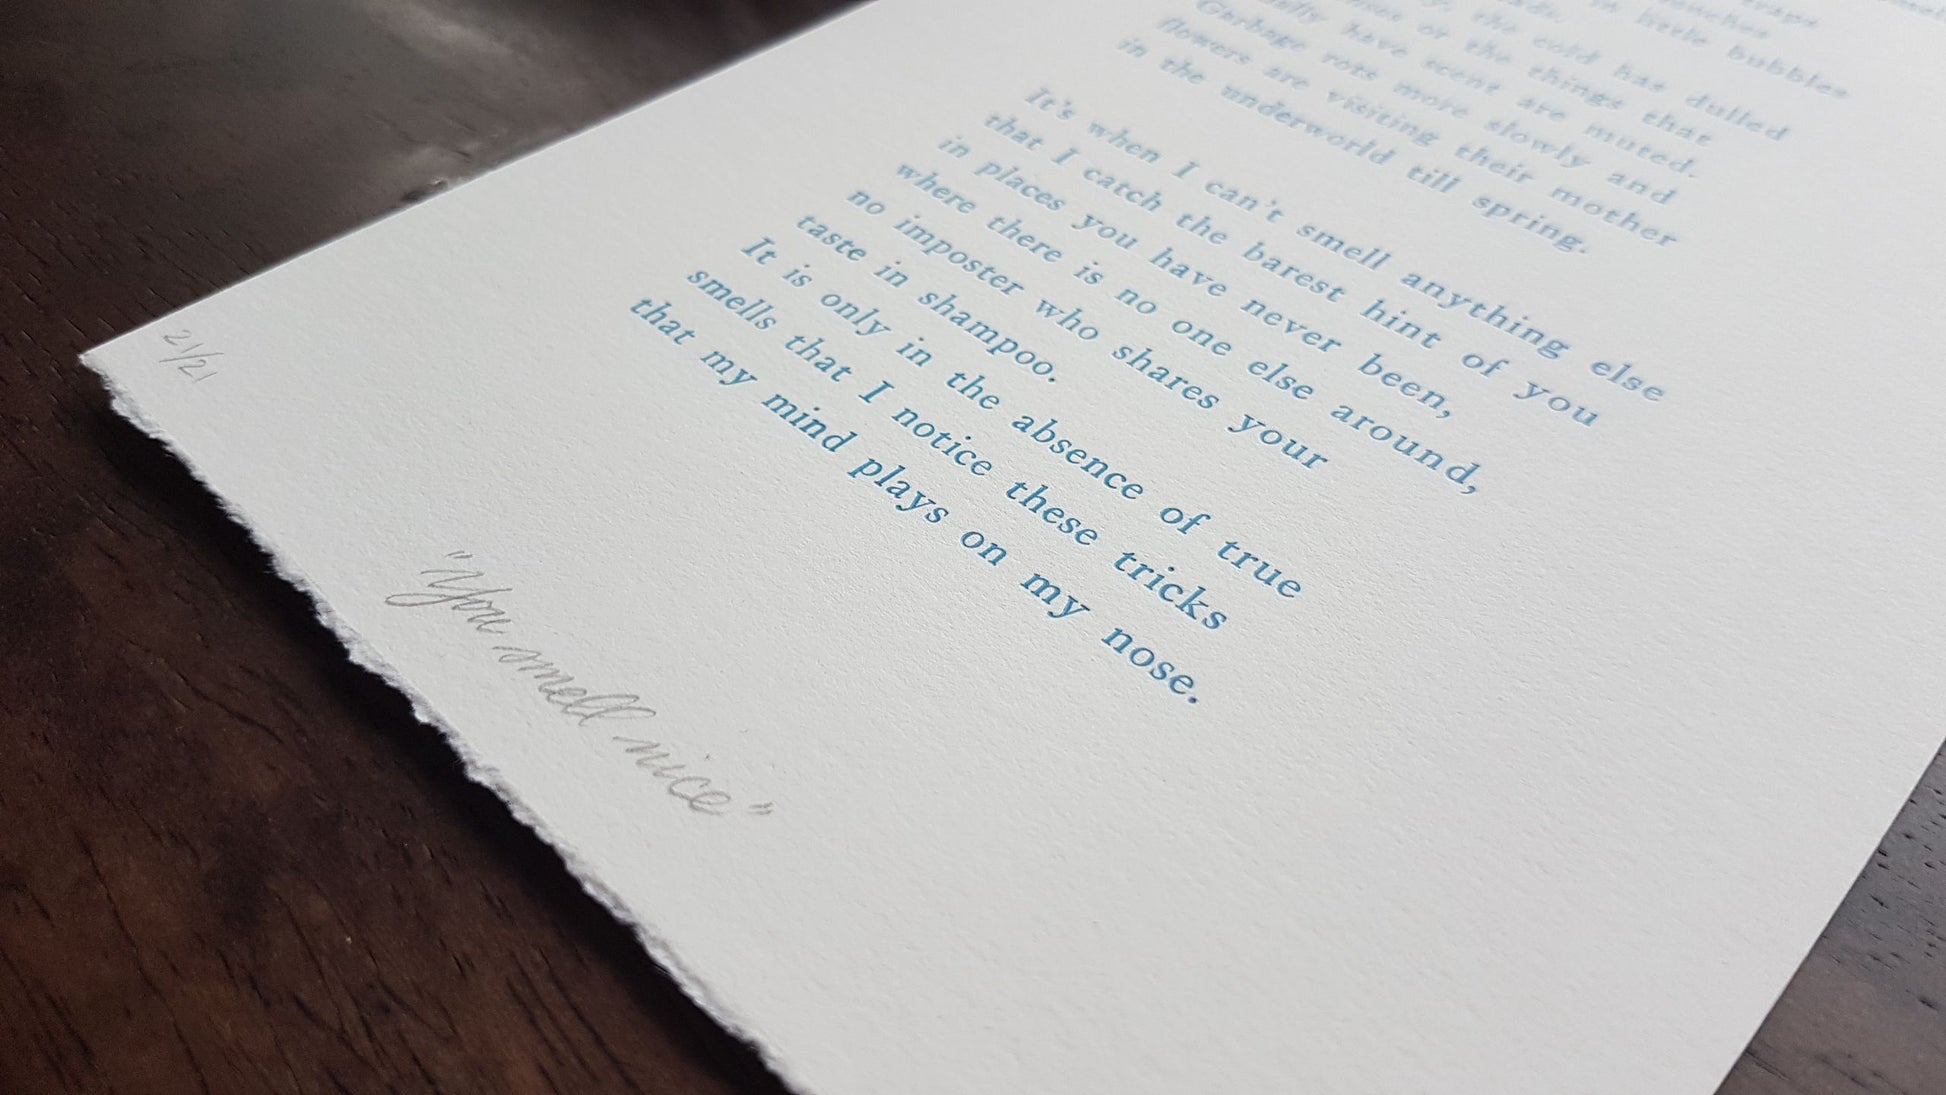 in little bubbles
the cold has dulled
or the things that
have scent are muted.
Garbage rots more slowly and
flowers are visiting their mother
in the underworld till spring.
It's when I can't smell anything else
that I catch the barest hint of you
in places you have never been,
where there is no one else around,
no imposter who shares your
taste in shampoo.
It is only in the absence of true
smells that I notice these tricks
that my mind plays on my nose.
21/21
"You smell nice"